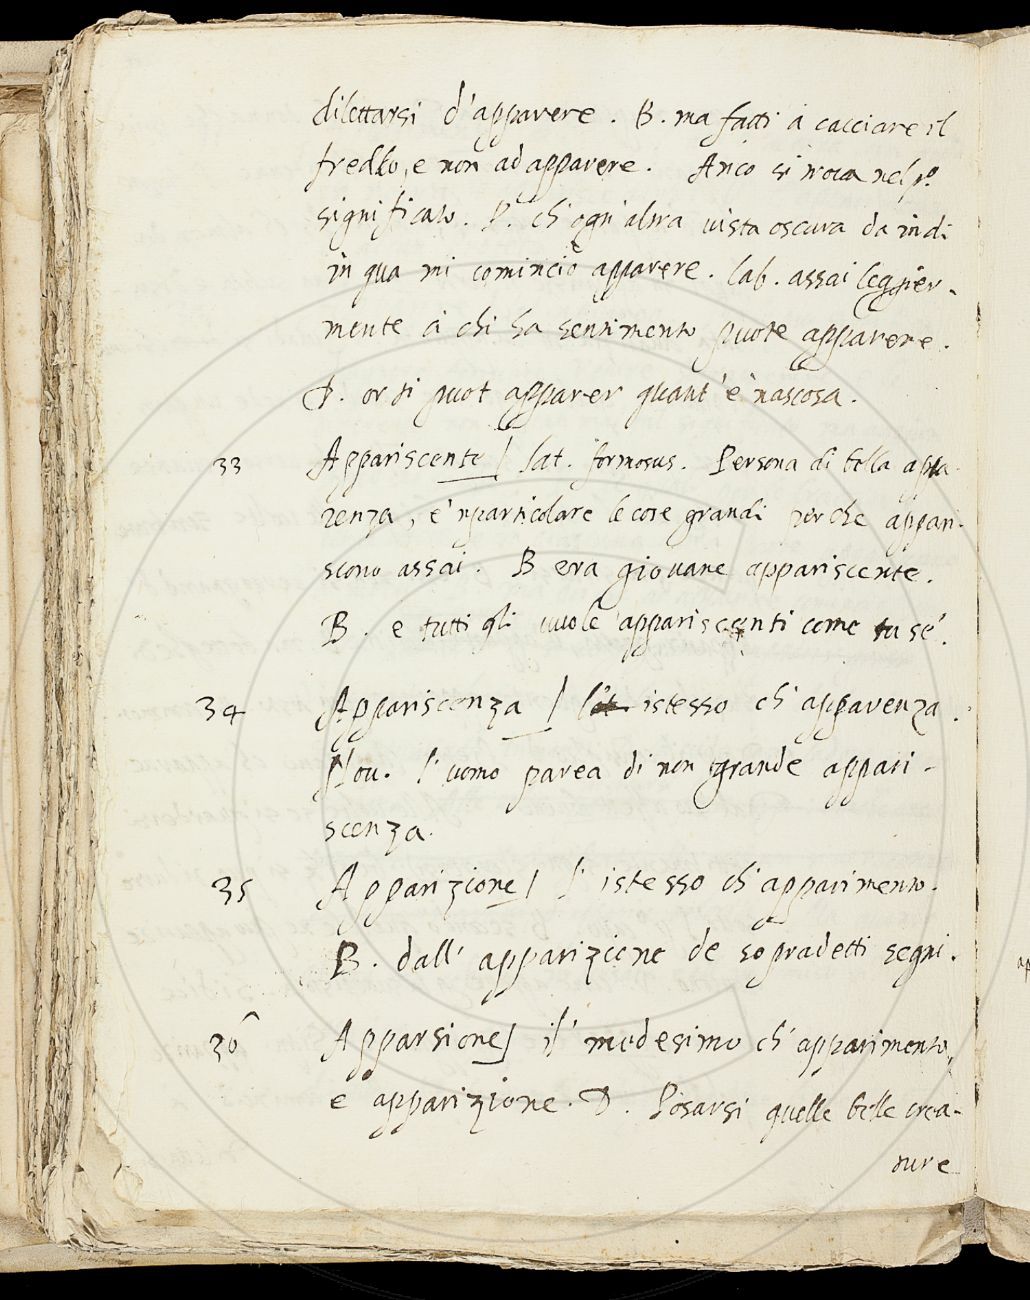 dilettarsi d'apparere. B. ma fatti à cacciare il
freddo, e non ad apparere. Anco si trova nel pº
significato. P. ch'ogn'altra vista oscura da indi
in qua mi cominciò apparere. lab. assai leggier-
mente à chi ha sentimento puote apparere.
D. or ti puot apparer quant'è nascosa.
33 Appariscente / lat. formosus. Persona di bella appa
renza, e'n particolare le cose grandi perche appari-
scono assai. B era giovane appariscente.
B. e tutti gli vuole appariscenti come tu se'.
34 Appariscenza / l' istesso ch'apparenza.
Nov. l'uomo parea di non grande appari-
scenza.
35 Apparizione / l' istesso ch'apparimento.
B. dall' apparizione de sopradetti segni.
36 Apparsione / il' medesimo ch'apparimento,
e apparizione. D. Posarsi quelle belle crea-
ture
ap